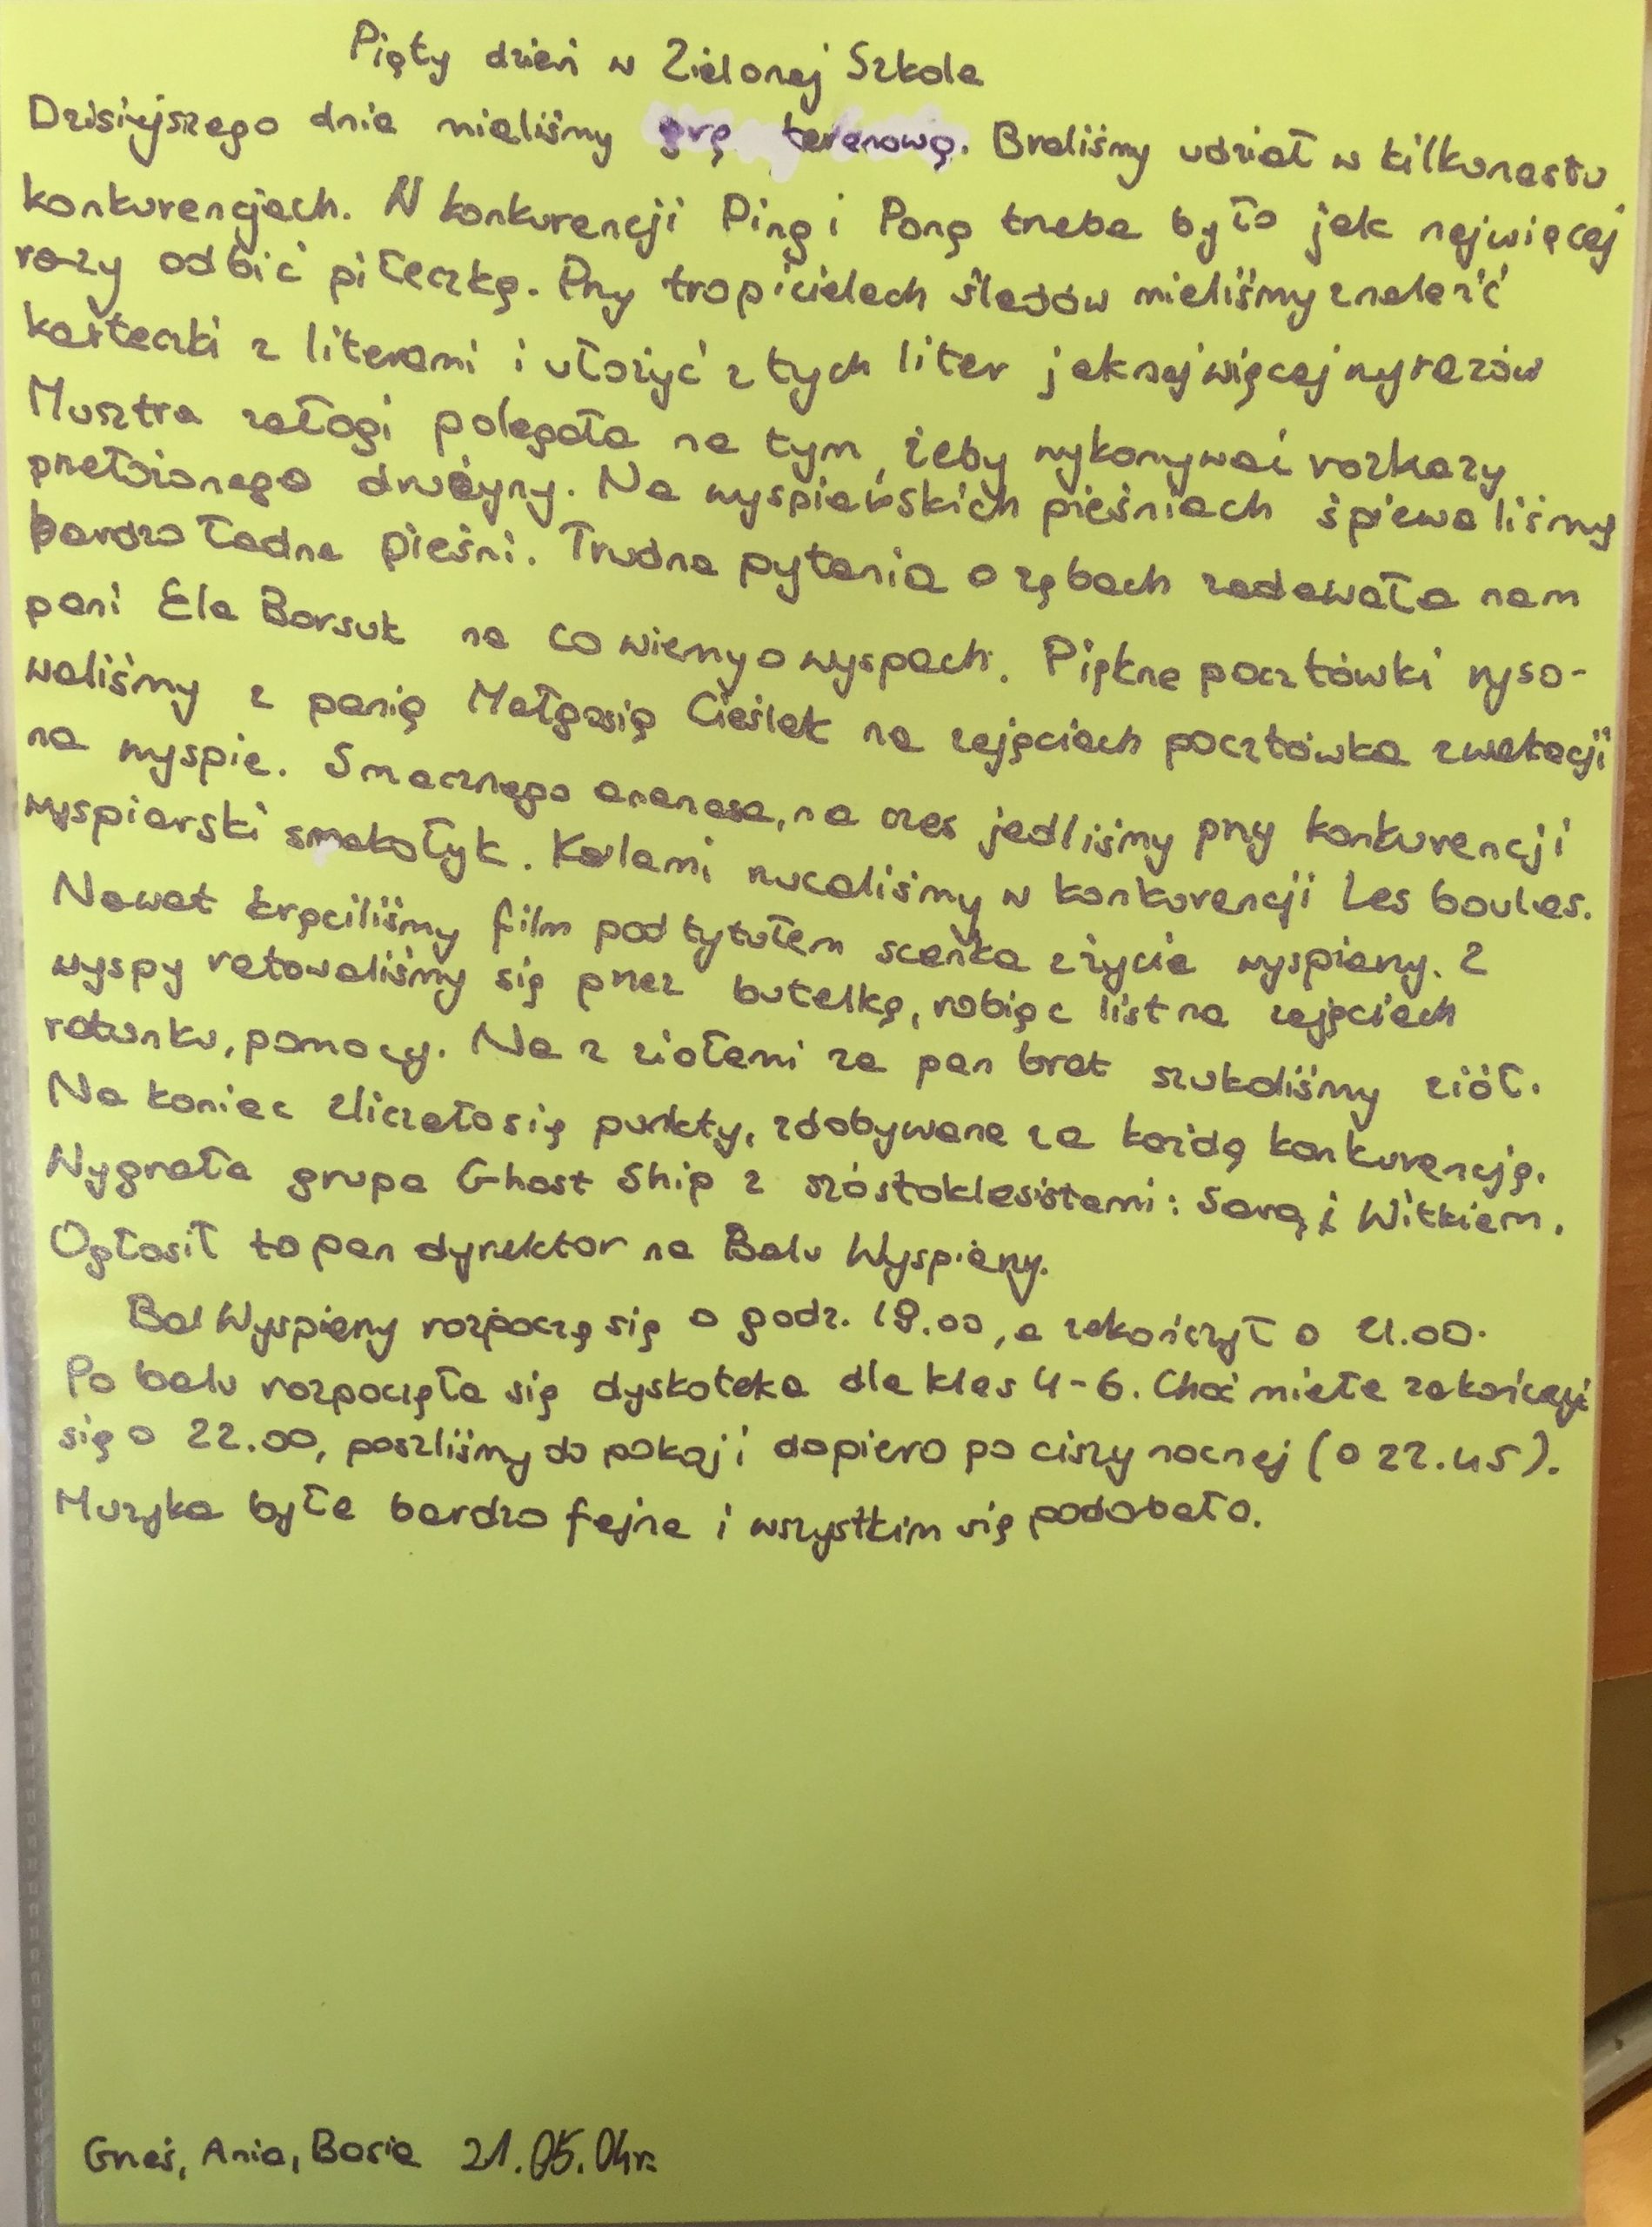 Piąty dzień w Zielonej Szkole
Dzisiejszego dnia mieliśmy grę terenową. Braliśmy udział w kilkunastu
konkurencjach. W konkurencji Ping i Pong trzeba było jak najwięcej
razy odbić piłeczkę. Przy tropicielach śladów mieliśmy znaleźć
karteczki z literami i ułożyć z tych liter jak najwięcej wyrazów
Musztra załogi polegała na tym, żeby wykonywać rozkazy
przełożonego drużyny. Na wyspiarskich pieśniach śpiewaliśmy
bardzo ładne pieśni. Trudne pytania o zębach zadawała nam
pani Ela Borsuk na co wiemy o wyspach. Piękne pocztówki ryso-
waliśmy z panią Małgosią Cieślak na zajęciach pocztówka z wakacji
na wyspie. Smacznego ananasa, na czas jedliśmy przy konkurencji
wyspiarski smakołyk. Kulami rzucaliśmy w konkurencji Les boules.
Nawet kręciliśmy film pod tytułem scenka z życia wyspiarzy. Z
wyspy ratowaliśmy się przez butelkę, robiąc list na zajęciach
ratunku, pomocy. Na z ziołami za pan brat szukaliśmy ziół.
Na koniec zliczało się punkty, zdobywane za każdą konkurencję.
Wygrała grupa Ghost Ship z szóstoklasistami: Sarą i Witkiem.
Ogłosił to pan dyrektor na Balu Wyspiarzy.
Bal Wyspiarzy rozpoczą się o godz. 19.00, a zakończył o 21.00.
Po balu rozpoczęła się dyskoteka dla klas 4-6. Choć miała zakończyć
się o 22.00, poszliśmy do pokoji dopiero po ciszy nocnej (o 22.45).
Muzyka była bardzo fajna i wszystkim się podobało.
Grześ, Ania, Basia 21.05.04r.